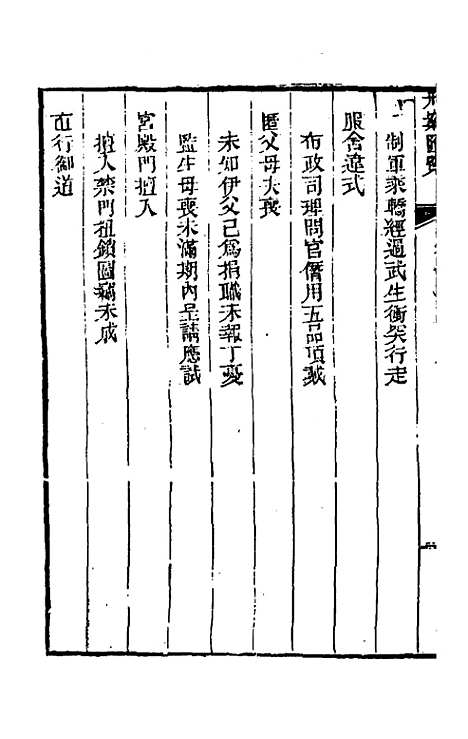 刑案匯覽
制軍乘轎經過武生衝突行走
服舍違式
布政司理問官僭用五品頂戴
匿父母夫喪
未知伊父已爲捐職未報丁憂
監生母喪未滿期內呈請應試
宮殿門擅入
擅入禁門扭鎖圖竊未成
直行御道